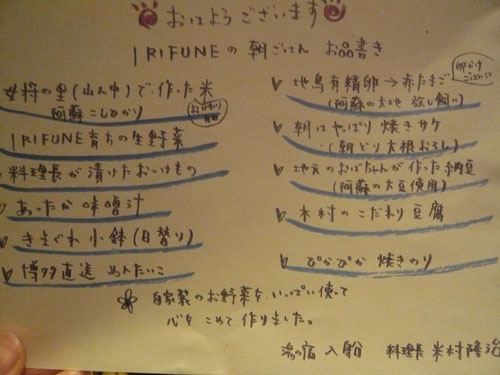 おはようございます
IRIFUNEの朝ごはん お品書き
女将の里(山ん中)で作った米
(阿蘇こしひかり)
おかわり自由
IRIFUNE育ちの生野菜
料理長が漬けたおつけもの
あったか味噌汁
きまぐれ小鉢(日替り)
博多直送 めんたいこ
地鳥有精卵→赤たまご
(阿蘇の大地 放し飼い)
卵かけ
朝はやっぱり焼きサケ
(朝どり大根おろし)
地元のおばちゃんが作った納豆
(阿蘇の大豆使用)
木村のこだわり豆腐
ぴかぴか 焼きのり
自家製のお野菜を、いっぱい使って
心をこめて作りました。
湯の宿 入船 料理長 米村隆治